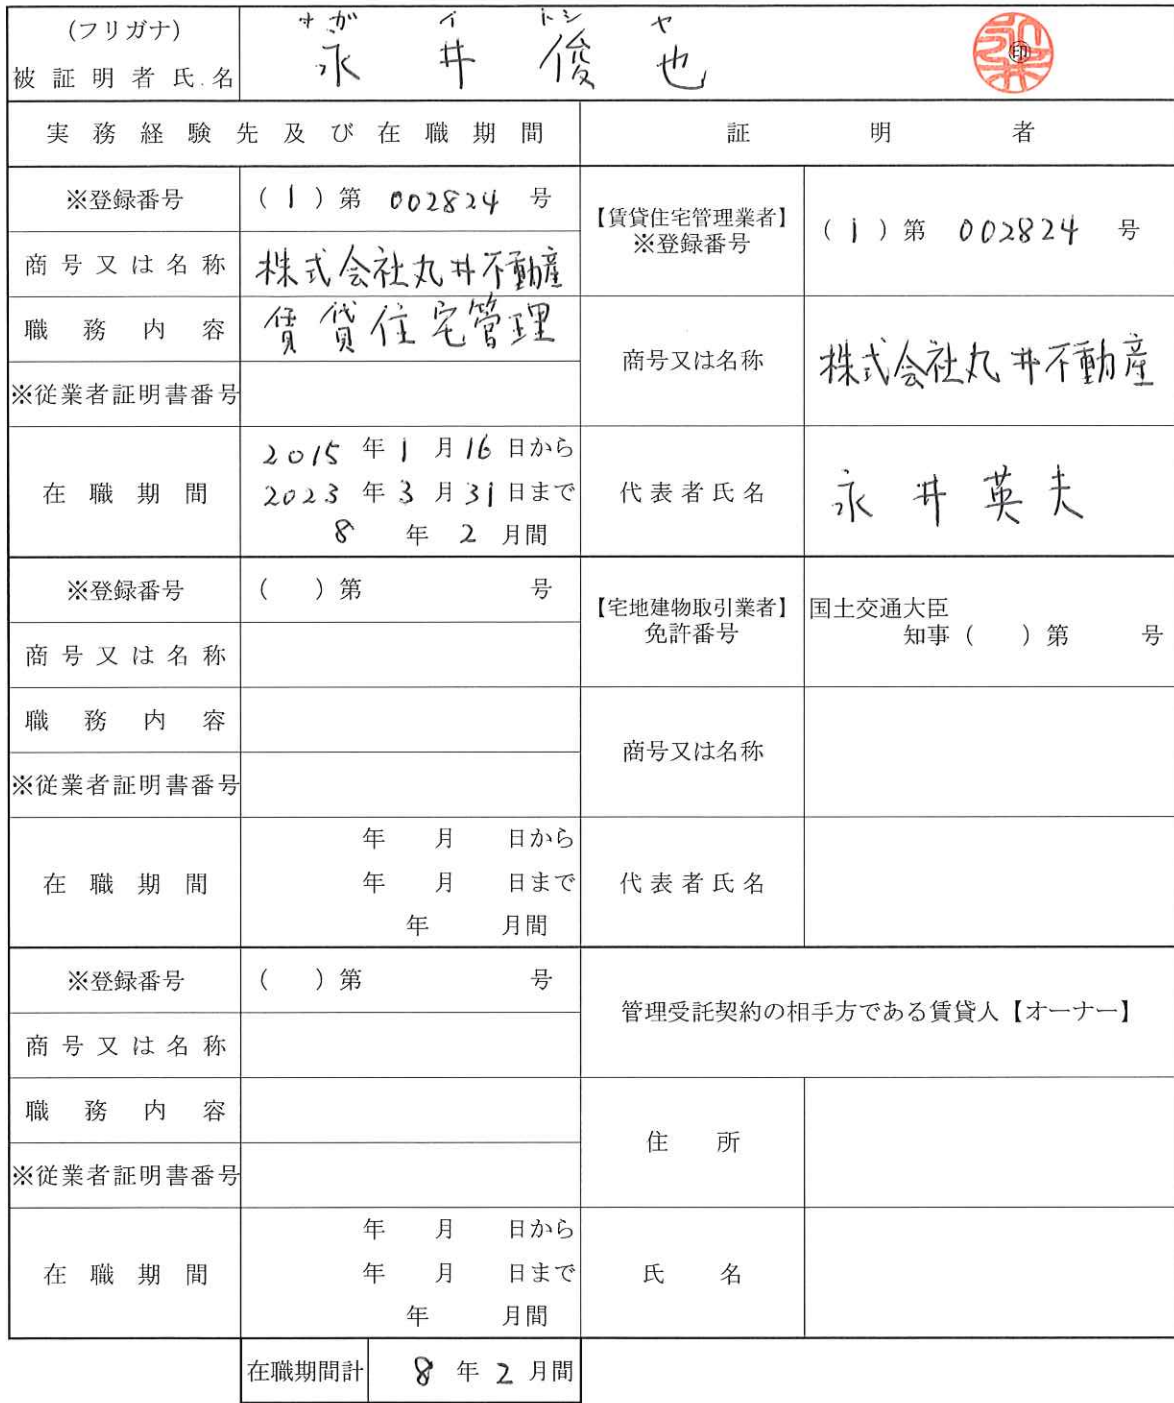 (フリガナ) ナガ イ トシ ヤ
被証明者氏.名 永井俊也 ㊞
実務経験先及び在職期間 証明者
※登録番号 (1)第 002824 号
【賃貸住宅管理業者】
※登録番号 (1)第 002824 号
商号又は名称 株式会社丸井不動産
職務内容 賃貸住宅管理
商号又は名称 株式会社丸井不動産
※従業者証明書番号
在職期間 2015年1月16日から
2023年3月31日まで
8年2月間
代表者氏名 永井英夫
※登録番号 ( )第 号
【宅地建物取引業者】
免許番号
国土交通大臣
知事( )第 号
商号又は名称
職務内容
商号又は名称
※従業者証明書番号
在職期間 年 月 日から
年 月 日まで
年 月間
代表者氏名
※登録番号 ( )第 号
管理受託契約の相手方である賃貸人【オーナー】
商号又は名称
職務内容
住所
※従業者証明書番号
在職期間 年 月 日から
年 月 日まで
年 月間
氏名
在職期間計 8年2月間